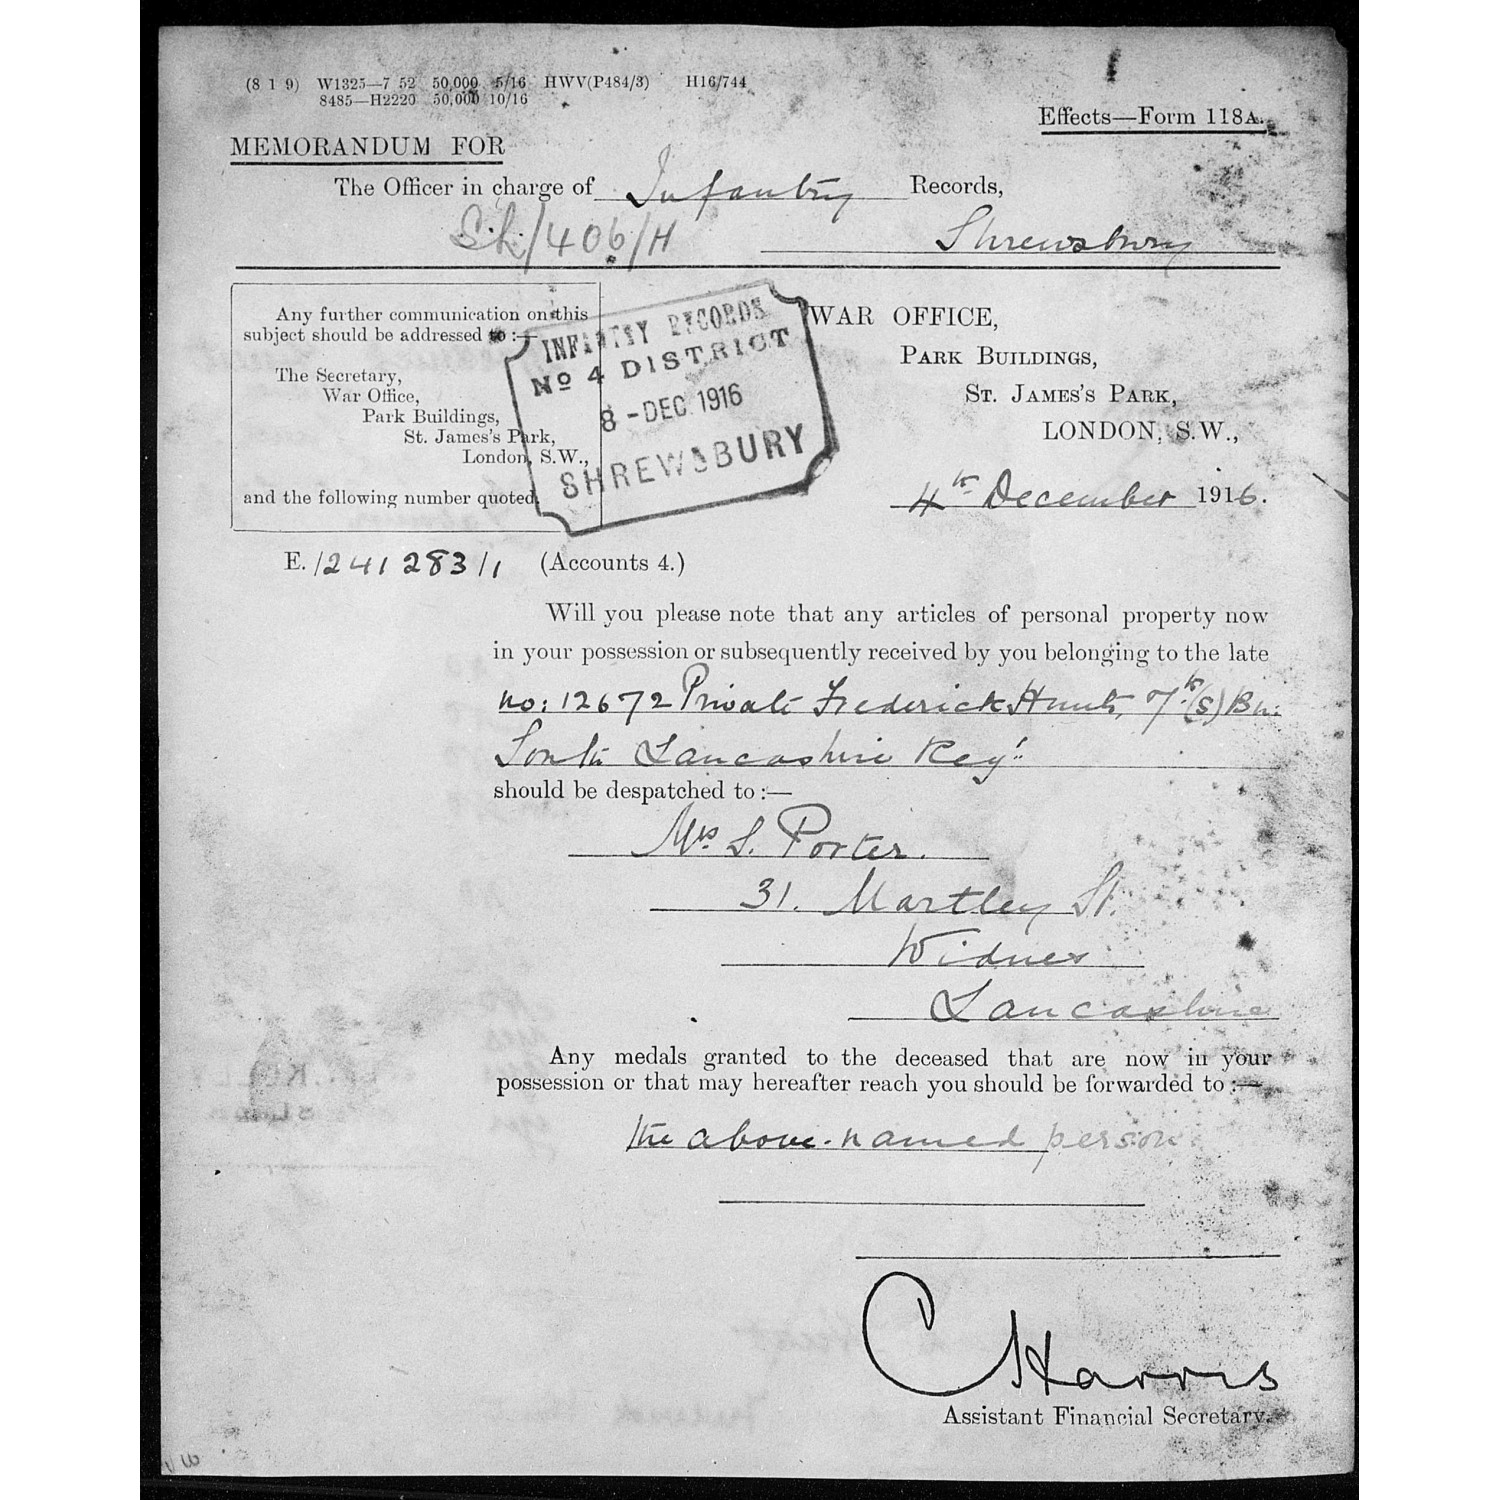 (8 1 9) W1325—7 52 50,000 5/16 HWV(P484/3) H16/744
8485—H2220 50,000 10/16
Effects—Form 118A.
MEMORANDUM FOR
The Officer in charge of Infantry Records,
Sh/406/H
Shrewsbury
Any further communication on this
subject should be addressed to :—
The Secretary,
War Office,
Park Buildings,
St. James's Park,
London, S.W.,
and the following number quoted.
INFANTRY RECORDS
No 4 DISTRICT
8 - DEC. 1916
SHREWSBURY
WAR OFFICE,
PARK BUILDINGS,
ST. JAMES'S PARK,
LONDON, S.W.,
4th December 1916.
E./241283/1 (Accounts 4.)
Will you please note that any articles of personal property now
in your possession or subsequently received by you belonging to the late
no: 12672 Private Frederick Hunt, 7th (S) Bn:
South Lancashire Regt:
should be despatched to :—
Mrs S. Porter.
31. Martley St.
Widnes
Lancashire
Any medals granted to the deceased that are now in your
possession or that may hereafter reach you should be forwarded to :—
the above-named person.
C Harris
Assistant Financial Secretary.